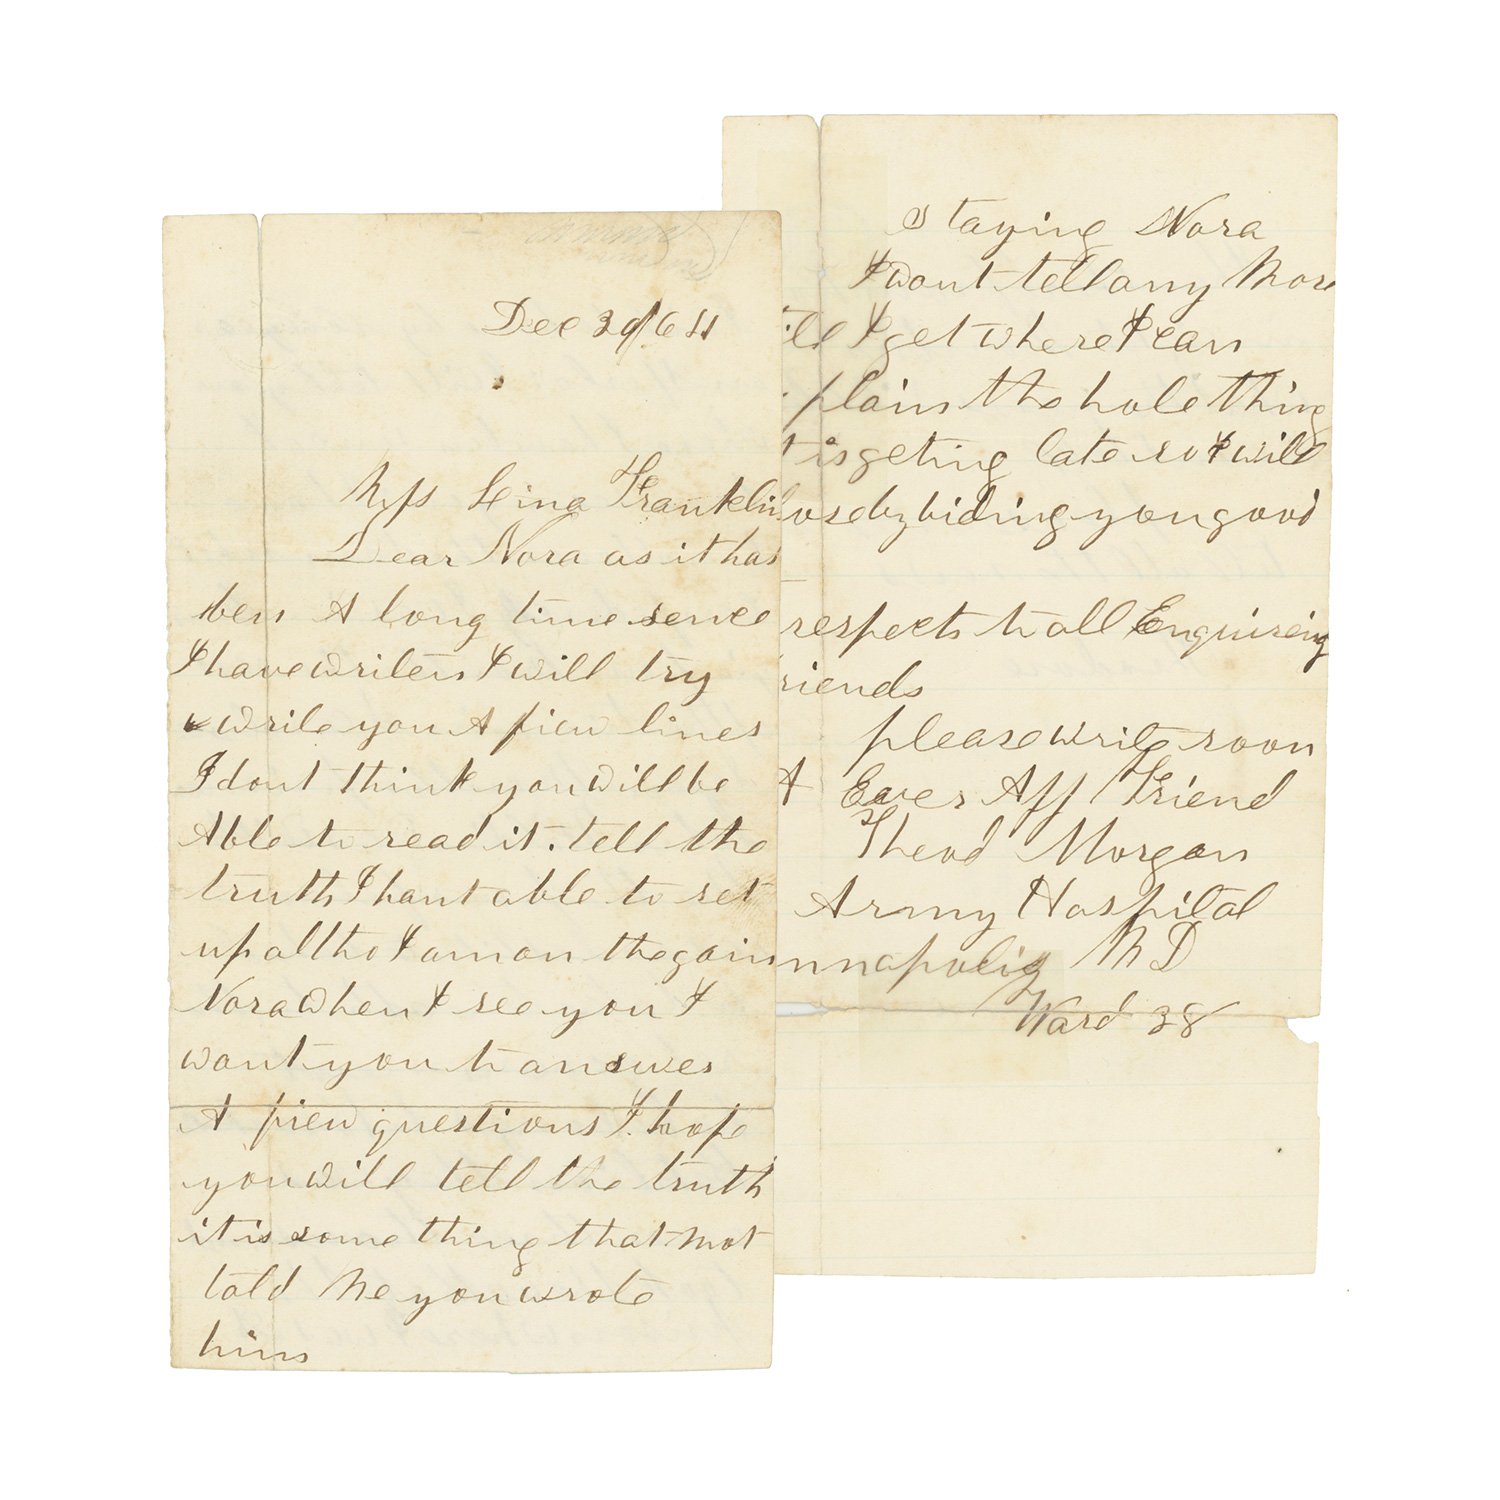 Dec 29/64
Miss Lina Franklin
Dear Nora as it has
ben A long time sence
I have writen I will try
& write you A fiew lines
I dont think you will be
Able to read it. tell the
truth I hant able to set
up altho I am on the gain
Nora when I see you I
want you to answer
A fiew questions I hope
you will tell the truth
it is some thing that Mot
told Me you wrote
him
staying Nora
I wont tell any More
ill I get where I can
plain the hole thing
t is geting late so I will
ose by biding you good
respects to all Enquireing
riends
please write soon
A Ever Aff Friend
Theod Morgan
Army Hospital
nnapolis MD
Ward 38